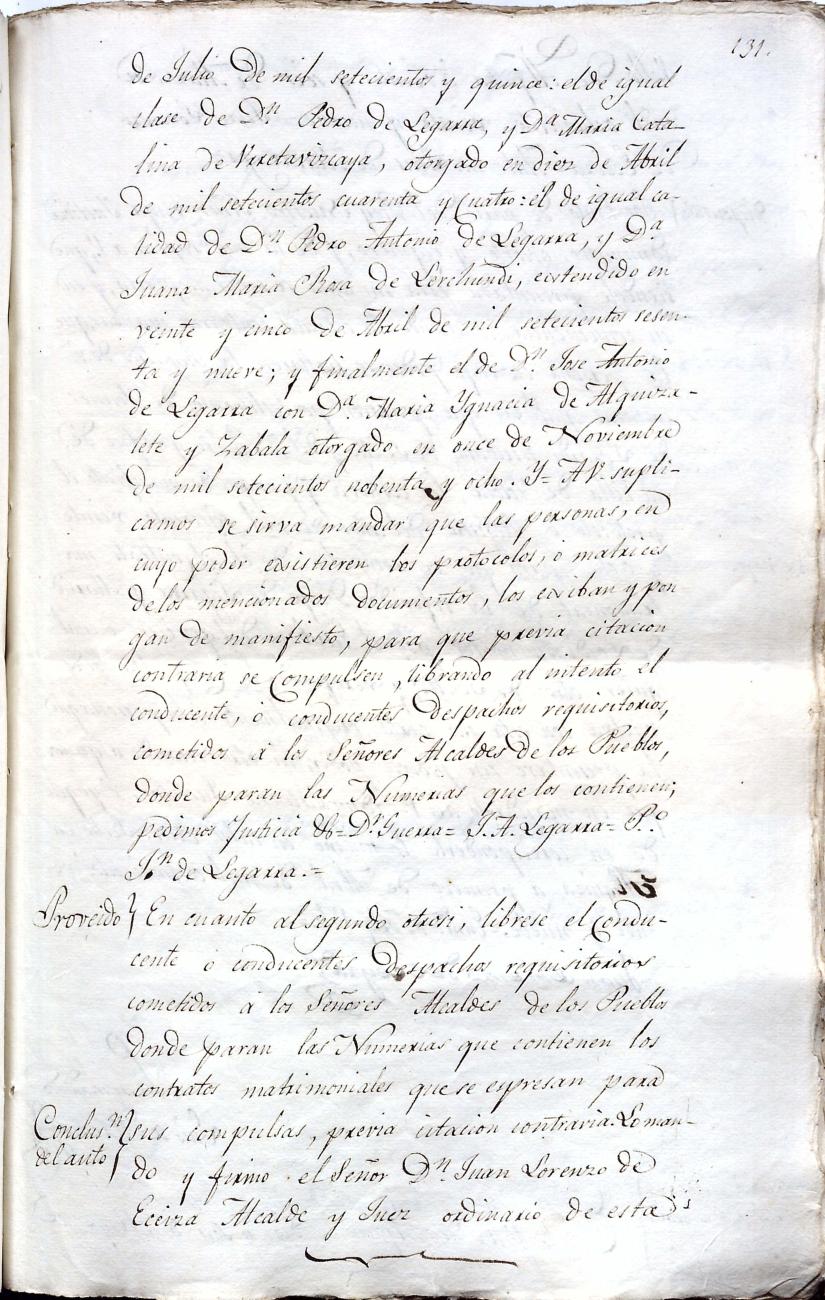 131.
de Julio de mil setecientos y quince: el de igual
clase de Dn. Pedro de Legarra, y Da. Maria Cata-
lina de Vrretavizcaya, otorgado en diez de Abril
de mil setecientos cuarenta y Cuatro: el de igual ca-
lidad de Dn. Pedro Antonio de Legarra, y Da.
Juana Maria Rosa de Lerchundi, extendido en
veinte y cinco de Abril de mil setecientos sesen-
ta y nueve; y finalmente el de Dn. Jose Antonio
de Legarra con Da. Maria Ygnacia de Alquiza-
lete y Zabala otorgado en once de Noviembre
de mil setecientos nobenta y ocho. Y= A V. supli-
camos se sirva mandar que las personas, en
cuyo poder existieren los protocolos, o matrices
de los mencionados documentos, los exiban y pon-
gan de manifiesto, para que previa citacion
contraria se Compulsen, librando al intento el
conducente, ó conducentes despachos requisitorios,
cometidos á los Señores Alcaldes de los Pueblos,
donde paran las Numerias que los contienen;
pedimos Justicia &= Dr. Guerra= J. A. Legarra= P.o
Jn. de Legarra.=
Proveido} En cuanto al segundo otrosi, librese el Condu-
cente ó conducentes despachos requisitorios
cometidos á los Señores Alcaldes de los Pueblos
donde paran las Numerias que contienen los
contratos matrimoniales que se espresan para
Conclusn. del auto} sus compulsas, previa citacion contraria: Lo man-
do y firmo el Señor Dn. Juan Lorenzo de
Eceiza Alcalde y Juez ordinario de esta